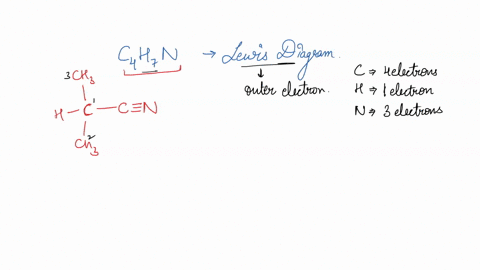 C4H7N → Lewis Diagram.
outer electron.
C ⇒ 4 electrons
H ⇒ 1 electron
N ⇒ 3 electrons
3CH3
H – C1 – C≡N
CH3 2